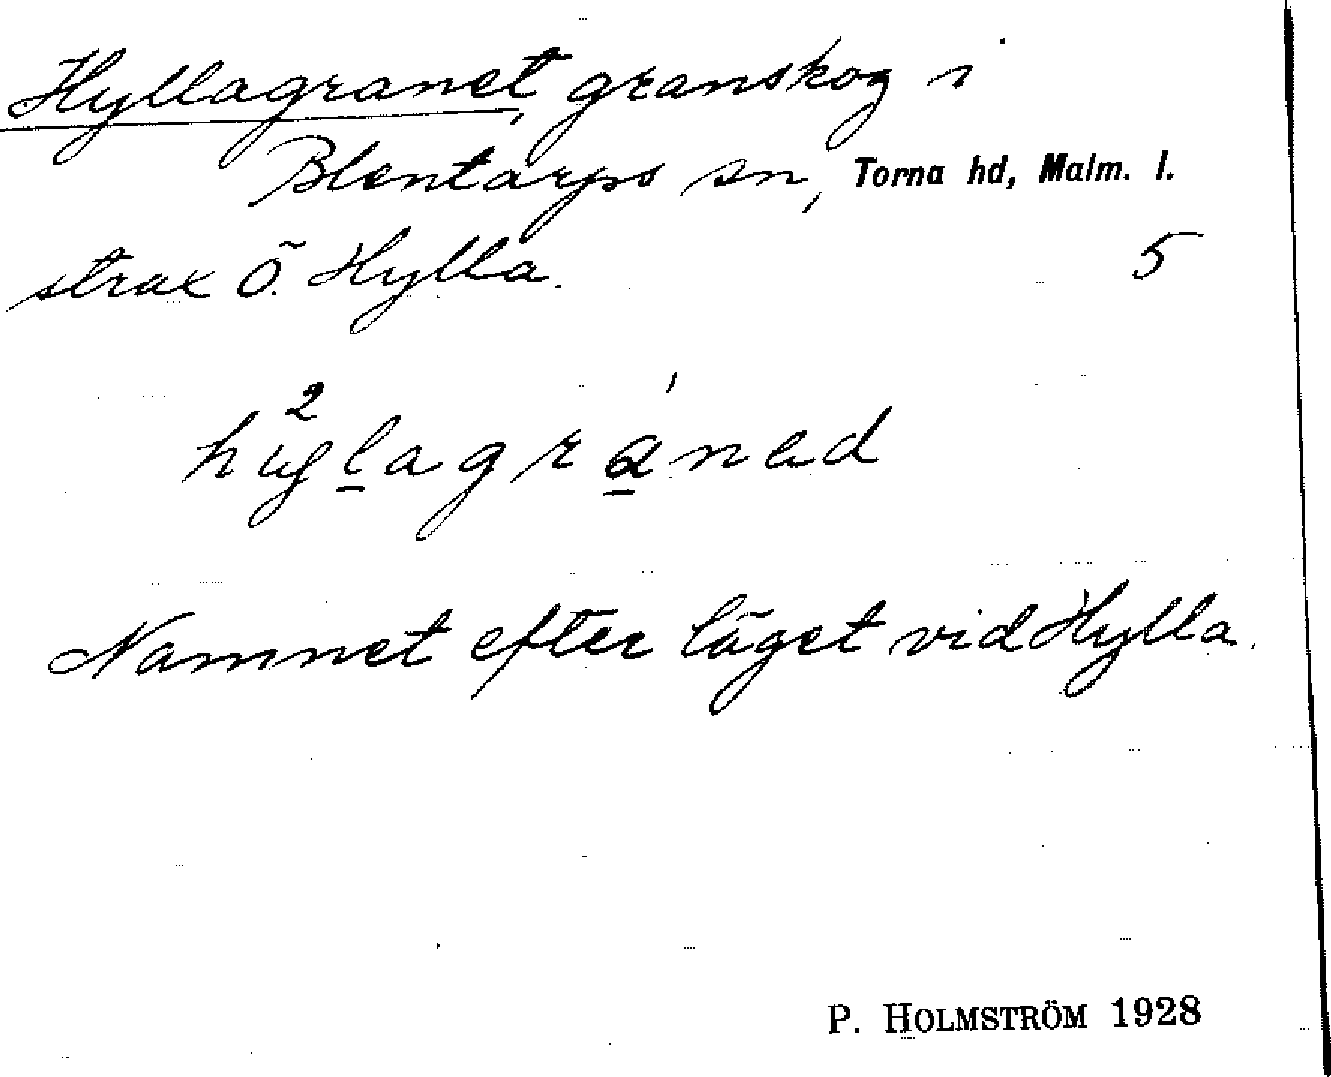 Hyllagranet, granskog i
Blentarps sn, Torna hd, Malm. l.
strax Ö. Hylla. 5
Namnet efter läget vid Hylla.
P. HOLMSTRÖM 1928